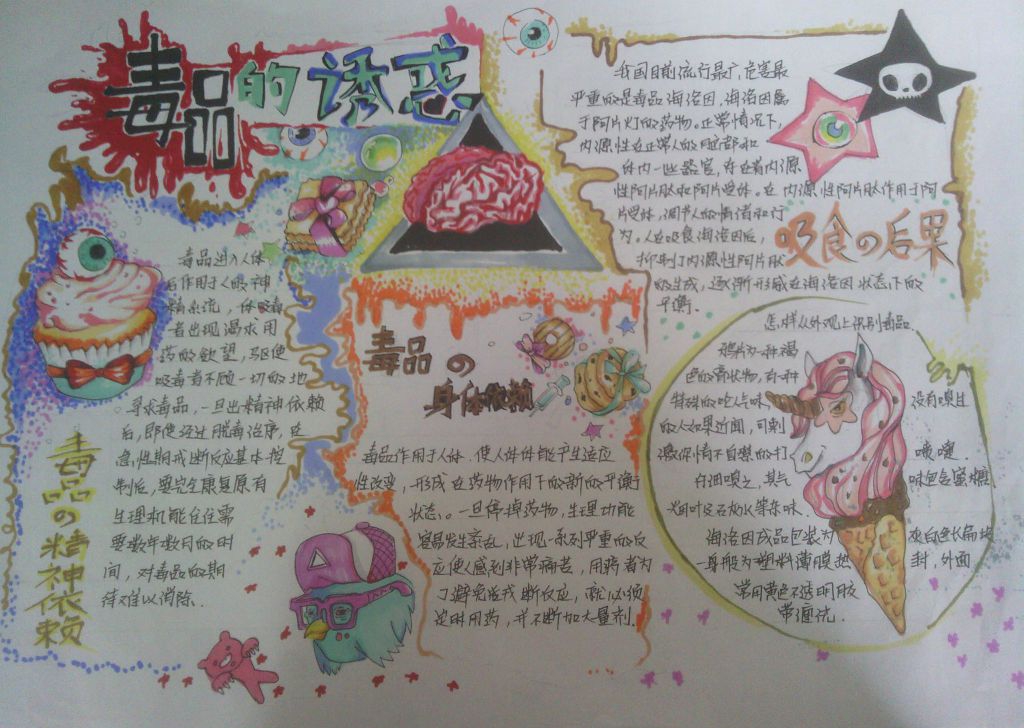 毒品的诱惑
毒品进入人体
后作用于人的神
精系统，使吸毒
者出现渴求用
药的欲望，驱使
吸毒者不顾一切的地
寻求毒品，一旦出精神依赖
后，即使经过脱毒治疗，在
急性期戒断反应基本控
制后，要完全康复原有
生理机能往往需
要数年数月的时
间，对毒品的期
待难以消除.
毒品の精神依赖
毒品の
身体依赖
毒品作用于人体.使人体体能产生适应
性改变，形成在药物作用下的新的平衡
状态.。一旦停掉药物，生理功能
容易发生紊乱，出现一系列严重的反
应使人感到非常痛苦，用药者为
了避免戒断反应，就必须
定时用药，并不断加大量剂.
我国目前流行最广，危害最
严重的是毒品海洛因，海洛因属
于阿片灯的药物。正常情况下，
内源性在正常人的脑部和
体内一些器官，存在着内源
性阿片肽和阿片受体。在内源性阿片肽作用于阿
片受体，调节人的情绪和行
为。人在吸食海洛因后，
抑制了内源性阿片肽
的生成，逐渐形成在海洛因状态下的
平衡.
吸食の后果
怎样从外观上识别毒品.
鸦片为一种褐
色的膏状物，有一种
特殊的吃人气味，没有嗅过
的人如果近闻，可刺
激你情不自禁的打喷嚏.
仔细嗅之，其气味包含蜜糖
火田叶及石灰水等杂味.
海洛因成品包装为灰白色长扁块
一身般为塑料薄膜热封，外面
常用黄色不透明胶
带缠绕.